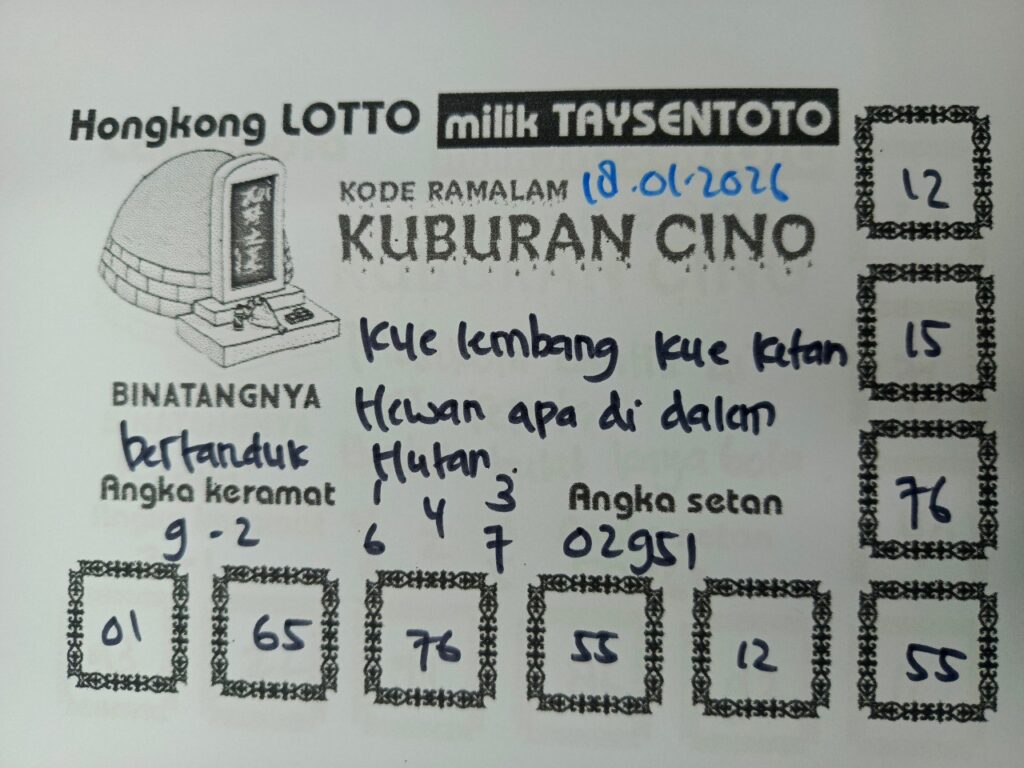 Hongkong LOTTO milik TAYSENTOTO
KODE RAMALAM 18.01.2026
KUBURAN CINO
kue lembang kue ketan
Hewan apa di dalam
Hutan.
BINATANGNYA
bertanduk
Angka keramat
9-2
1 3
4
6 7
Angka setan
02951
12
15
76
55
01 65 76 55 12